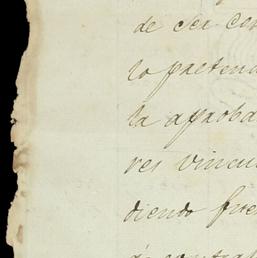 de ser con
lo preten
la aproba
res vincu
diendo fue